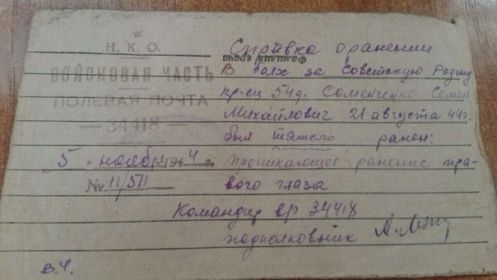 Н. К. О.
ВОЙСКОВАЯ ЧАСТЬ
ПОЛЕВАЯ ПОЧТА
— 34418
5 " ноября 1944 г.
№ 11/511
Справка о ранении
В боях за Советскую Родину
кр-ец 54 д. Соменченко Семен
Михайлович 21 августа 44 г.
был тяжело ранен:
проникающее ранение пра-
вого глаза
Командир вр 34418
подполковник
В. Ч.